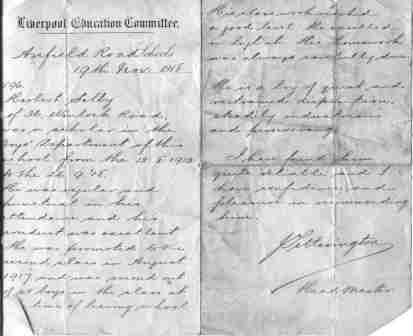 Liverpool Education Committee.
Anfield Road
19th Nov. 1918
Herbert Selby
of 34 Road,
was a scholar in the
Boys' Department of this
school from the 12. 5. 1913
to the 26. 9. '18.
He was regular and
punctual in his
attendance and his
conduct was excellent
He was promoted to the
second class in August
1917 and was second out
of boys in the class at
time of leaving school.
His class work reached
a good level. He excelled
in English. His homework
was always carefully done.
He is a boy of quiet and
disposition,
steady, industrious
and persevering.
I have found him
quite reliable and I
have confidence and
pleasure in recommending
him.
Head Master